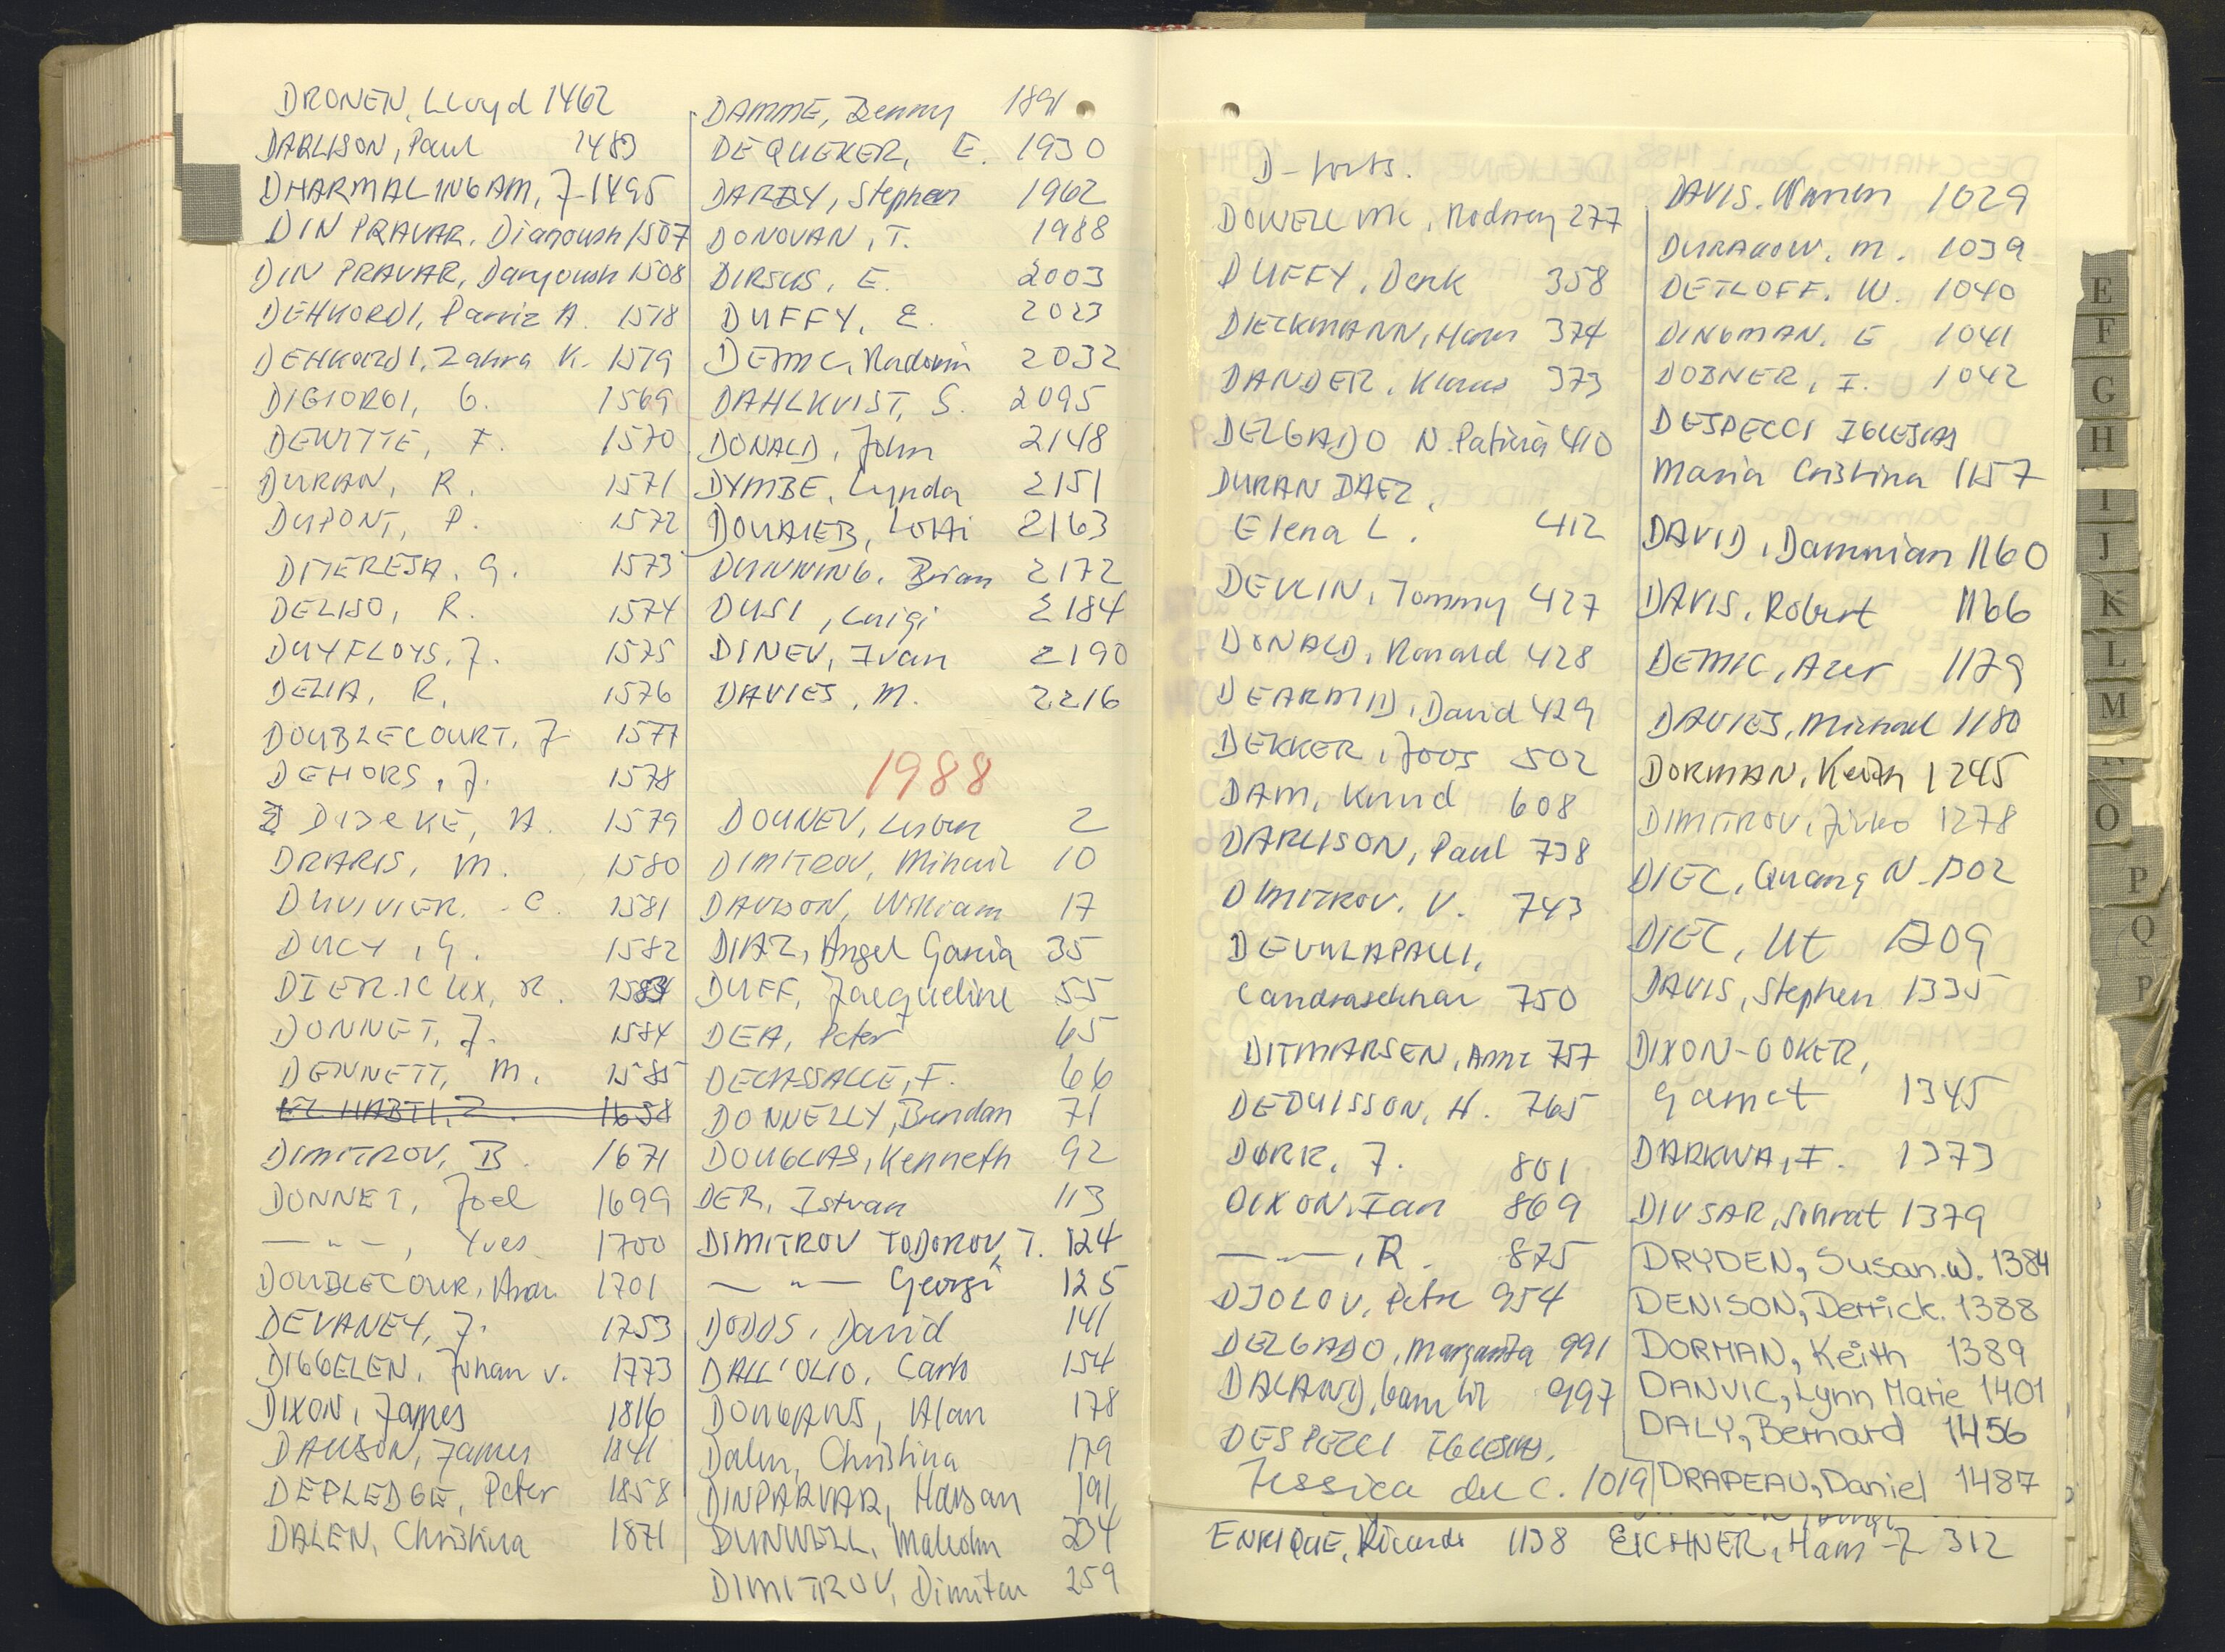 DRONEN, Lloyd 1462
DARLISON, Paul 1483
DHARMALINGAM, J. 1495
DIN PRAVAR, Dianoush 1507
DIN PRAVAR, Daryoush 1508
DEHKORDI, Parviz A. 1518
DEHKORDI, Zahra K. 1519
DIGIORGI, G. 1569
DEWITTE, F. 1570
DURAN, R. 1571
DUPONT, P. 1572
DITERESA, G. 1573
DELISO, R. 1574
DUYFLOYS, J. 1575
DELIA, R. 1576
DOUBLECOURT, J 1577
DEHORS, J. 1578
1579
DRARIS, M. 1580
DUVIVIER, C. 1581
DUCY, G. 1582
DIERICKX, R.
DONNET, J. 1584
DENNETT, M. 1585
EL HABTI, Z. 1658
DIMITROV, B. 1671
DONNET, Joel 1699
— " —, Yves 1700
DOUBLECOUR, 1701
DEVANEY, J. 1753
DIGGELEN, Johan v. 1773
DIXON, James 1816
DAWSON, James 1841
DEPLEDGE, Peter 1858
DALEN, Christina 1871
DAMME, Benny 1891
DEQUEKER, E. 1930
DARBY, Stephen 1962
DONOVAN, T. 1988
DIRSUS, E. 2003
DUFFY, E. 2023
DEMIC, Radomir 2032
DAHLKVIST, S. 2095
DONALD, John 2148
DYMBE, Lynda 2151
DOUAIEB, Lotfi 2163
DUNNING, Brian 2172
DUSI, Luigi 2184
DINEV, Ivan 2190
DAVIES, M. 2216
1988
DOUNEV, 2
DIMITROV, Mihail 10
DAVISON, William 17
DIAZ, Angel Garcia 35
DUFF, Jacqueline 55
DEA, Peter 65
DELASSALLE, F. 66
DONNELLY, Brendan 71
DOUGLAS, Kenneth 92
DER, Istvan 113
DIMITROV TODOROV, T. 124
— " — Georgi 125
DODDS, David 141
DALL'OLIO, Carlo 154
DOUGANS, Alan 178
Dalen, Christina 179
DINPARVAR, Hassan 191
DUNWELL, Malcolm 234
DIMITROV, Dimitar 259
D - forts.
DOWELL Mc, Rodney 277
DUFFY, Derk 358
DIECKMANN, Hans 374
DANDER, Klaus 373
DELGADO N. Patricia 410
DURAN DAEZ,
Elena L. 412
DEVLIN, Tommy 427
DONALD, Ronald 428
DEARMID, David 429
DEKKER, Joos 502
DAM, Knud 608
DARLISON, Paul 738
DIMITROV, V. 743
DEVULAPALLI,
750
DITMARSEN, Anne 757
DEDUISSON, H. 765
DØRR, J. 801
DIXON, Ian 869
— " —, R. 875
DJOLOV, Petre 954
DELGADO, Margarita 991
997
DESPECCI IGLESIAS,
Jessica del C. 1019
DAVIS, Warren 1029
DURAKOW, M. 1039
DETLOFF, W. 1040
DINGMAN, E 1041
DOBNER, I. 1042
DESPECCI IGLESIAS
Maria Cristina 1157
DAVID, Dammian 1160
DAVIS, Robert 1166
DEMIC, Azer 1179
DAVIES, Michael 1180
DORMAN, Keith 1245
DIMITROV, Jivko 1278
DIEC, Quang N. 1302
DIEC, Ut 1309
DAVIS, Stephen 1335
DIXON-OOKER,
Garnet 1345
DARKWA, F. 1373
DIVSAR, Sohrat 1379
DRYDEN, Susan.W. 1384
DENISON, Derrick. 1388
DORMAN, Keith 1389
DANVIC, Lynn Marie 1401
DALY, Bernard 1456
DRAPEAU, Daniel 1487
ENRIQUE, Ricardo 1138
EICHNER, Hans-J 312
E
F
G
H
I
J
K
L
M
O
P
Q
P